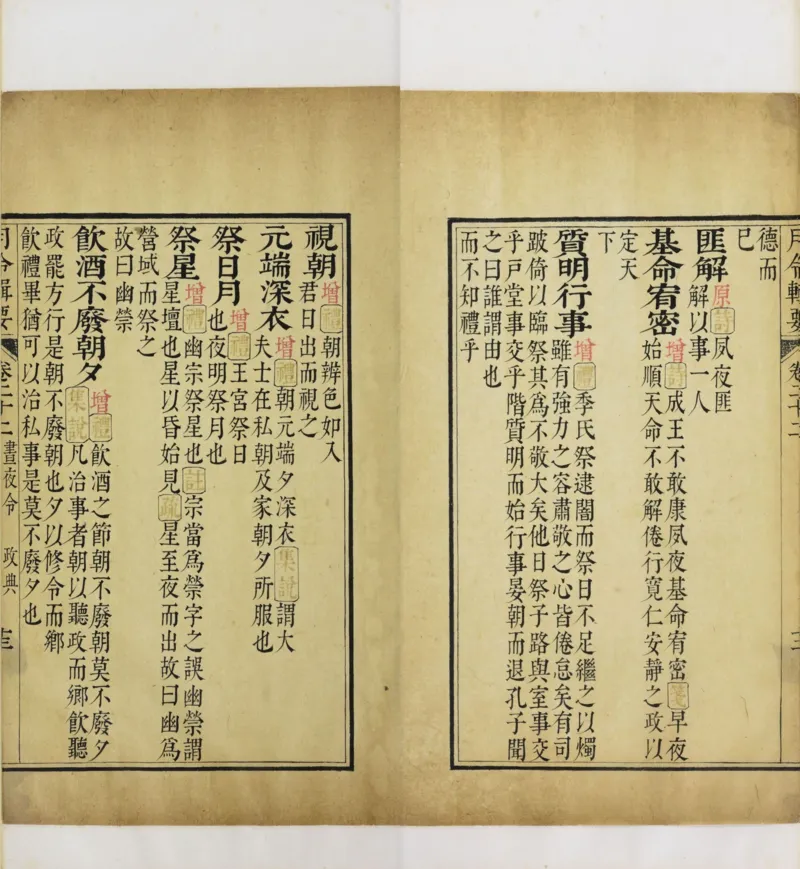 月令輯要 卷二十二
德而
已
匪解原詩夙夜匪
解以事一人
基命宥密增詩成王不敢康夙夜基命宥密箋早夜
始順天命不敢解倦行寬仁安靜之政以
定天
下
質明行事增禮季氏祭逮闇而祭日不足繼之以燭
雖有強力之容肅敬之心皆倦怠矣有司
跛倚以臨祭其爲不敬大矣他日祭子路與室事交
乎戸堂事交乎階質明而始行事晏朝而退孔子聞
之曰誰謂由也
而不知禮乎
視朝增禮朝辨色如入
君日出而視之
元端深衣增禮朝元端夕深衣集說謂大
夫士在私朝及家朝夕所服也
祭日月增禮王宮祭日
也夜明祭月也
祭星增禮幽宗祭星也註宗當爲禜字之誤幽禜謂
星壇也星以昏始見疏星至夜而出故曰幽爲
營域而祭之
故曰幽禜
飲酒不廢朝夕增禮飲酒之節朝不廢朝莫不廢夕
集說凡治事者朝以聽政而鄉飲聽
政罷方行是朝不廢朝也夕以修令而鄉
飲禮畢猶可以治私事是莫不廢夕也
月令輯要 卷二十二 晝夜令 政典